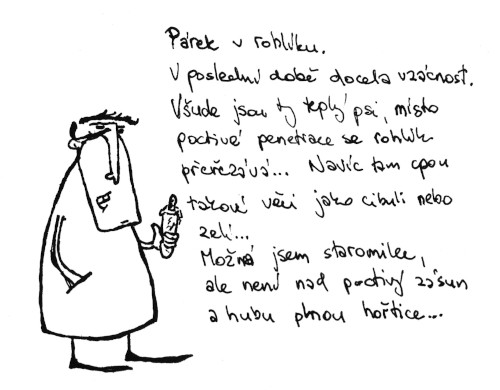 Párek v rohlíku.
V poslední době docela vzácnost.
Všude jsou ty teplý psi, místo
poctivé penetrace se rohlík
přeřezává... Navíc tam cpou
takové věci jako cibuli nebo
zelí...
Možná jsem staromilec,
ale není nad poctivý zásun
a hubu plnou hořtice...